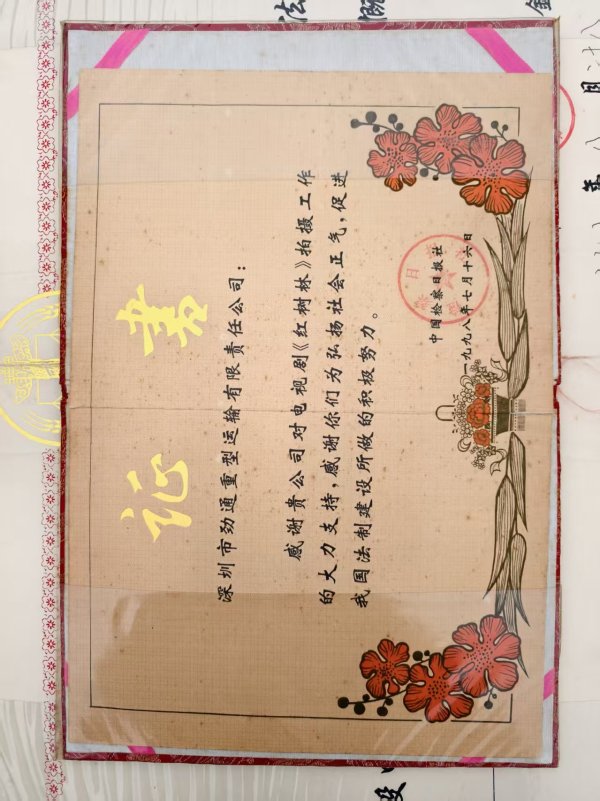 证书
深圳市劲通重型运输有限责任公司：
感谢贵公司对电视剧《红树林》拍摄工作
的大力支持，感谢你们为弘扬社会正气，促进
我国法制建设所做的积极努力。
中国检察日报社
一九九八年七月十六日